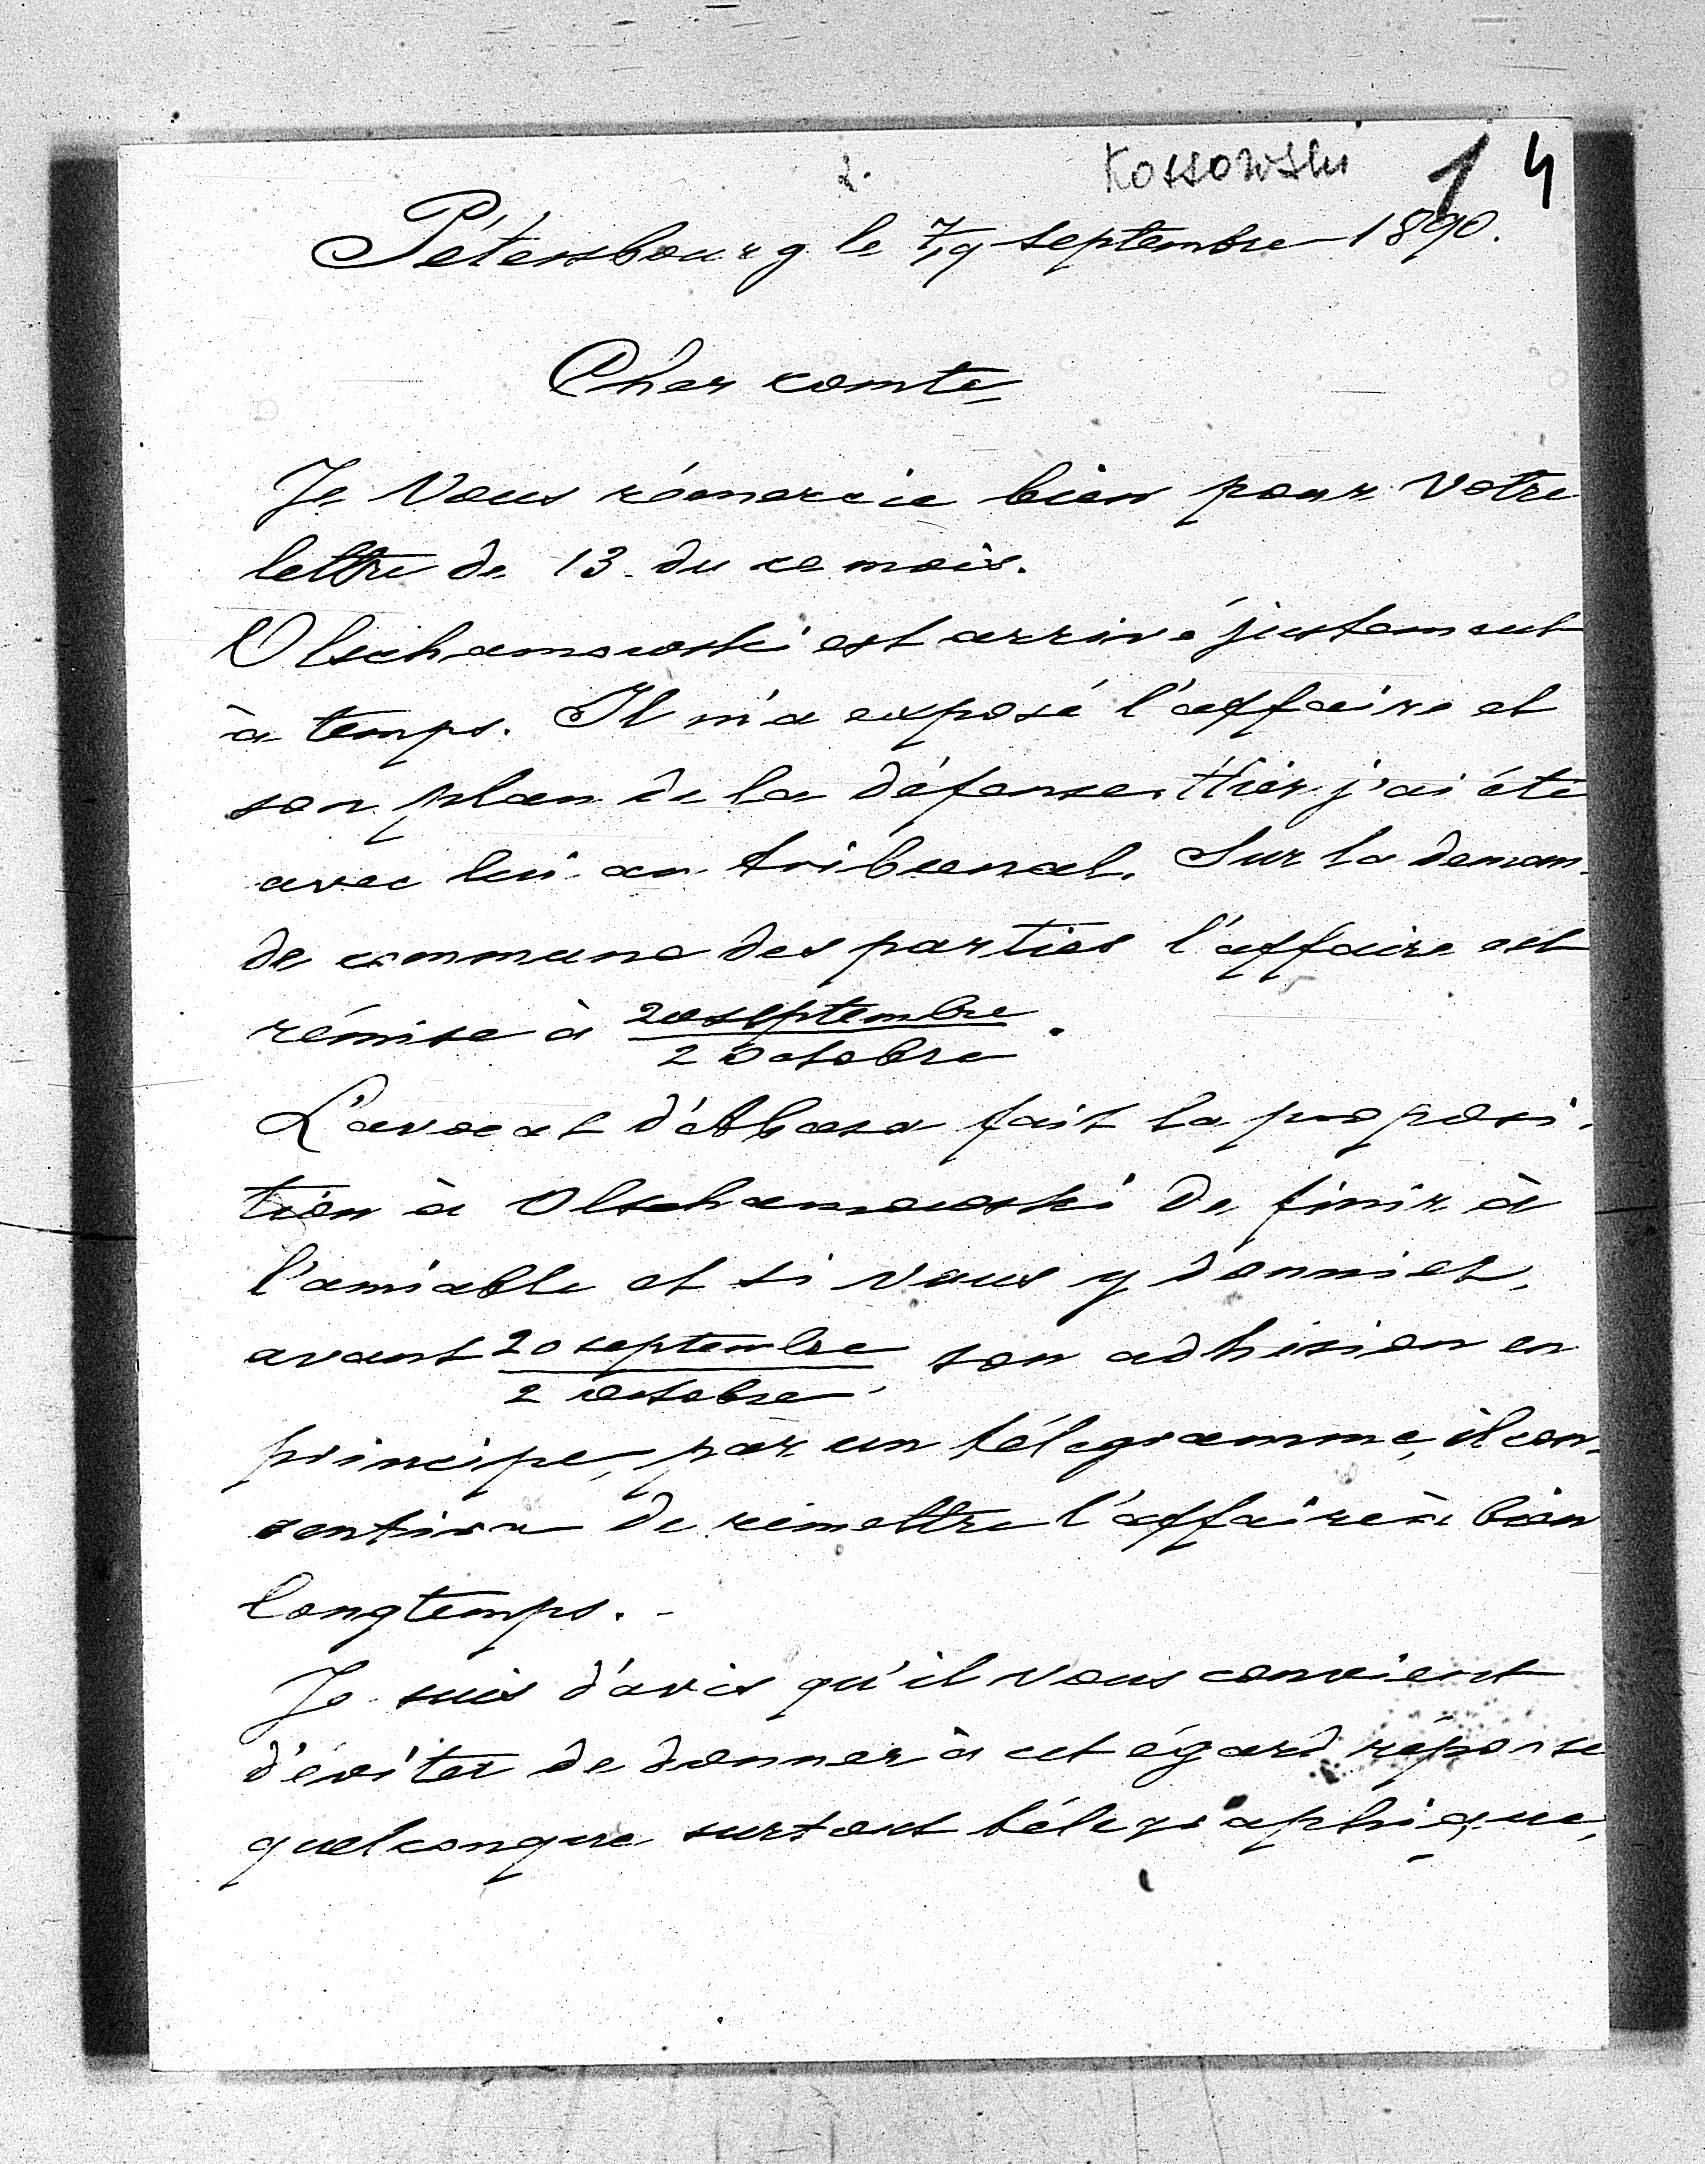 2. Kossowski 1 4
Pétersbourg le 7/19 septembre 1890.
Cher comte,
Je Vous rémercie bien pour Votre
lettre de 13 du ce mois.
Olschamowski est arrivé justement
à temps. Il m'a exposé l'affaire et
son plan de la défense. Hier j'ai été
avec lui au tribunal. Sur la deman-
de commune des parties l'affaire est
rémise à 20 septembre
2 octobre.
L'avocat d'Abasa fait la proposi-
tion à Olschamowski de finir à
l'amiable et si vous y donniez,
avant 20 septembre
2 octobre, son adhésion en
principe, par un télégramme, il con-
sentira de rémettre l'affaire à bien
longtemps. -
Je suis d'avis qu'il vous convient
d'éviter de donner à cet égard réponse
quelconque surtout télégraphique,